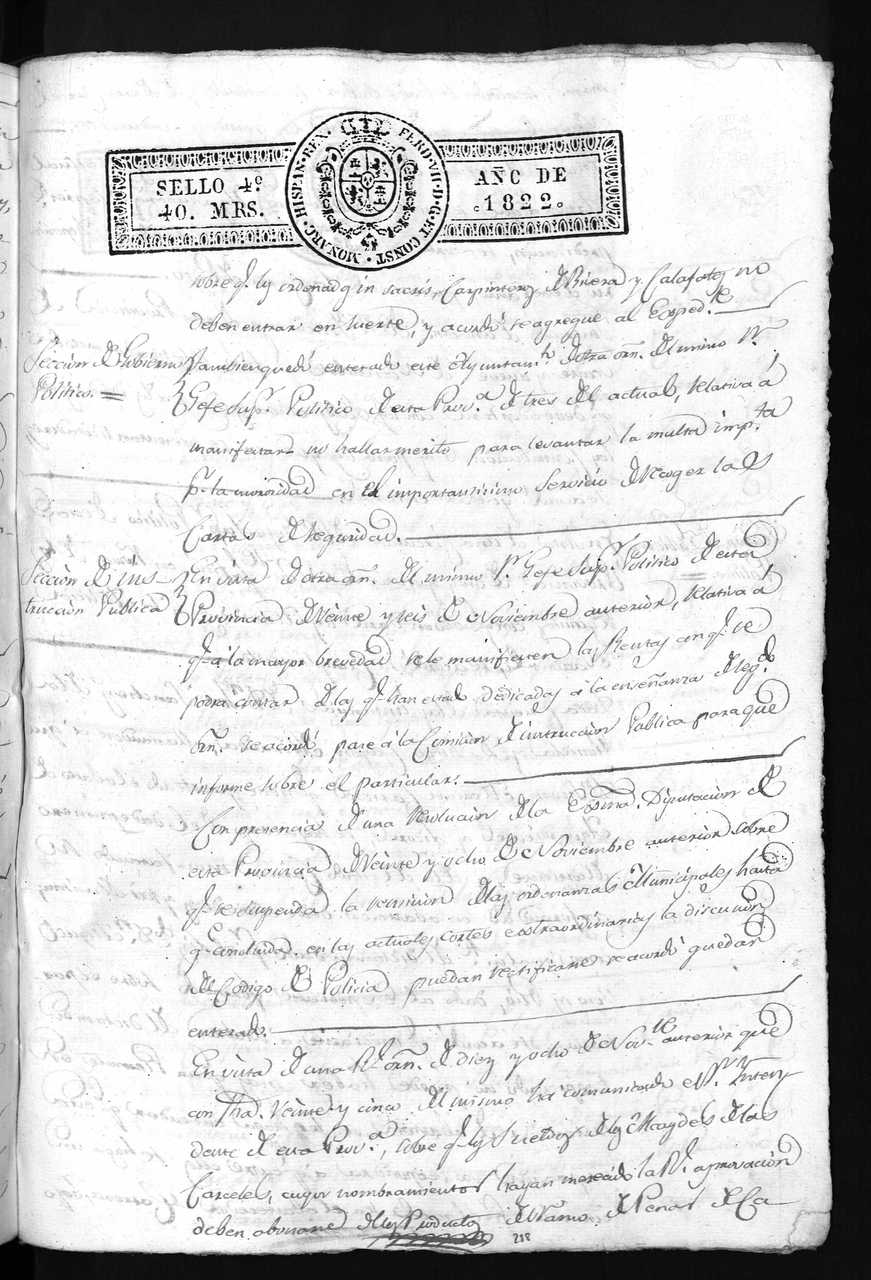 SELLO 4º
40. MRS.
HISPAN. REX. FERD. VII. D. G. ET CONST. MONARC.
AÑO DE
1822
sobre q.e los ordenados in sacris, Carpinteros de Rivera y Calafates no
deben entrar en suerte, y acordó se agregue al Exped.te
Sección de Gobierno
Politico. =
Tambien quedó enterado este Ayuntam.to de otra orn. del mismo S.r
Gefe Sup.r Politico de esta Prov.a de tres del actual, relativa á
manifestar no hallar merito para levantar la multa imp.ta
p.r la morosidad en el importantisimo Servicio de recoger las
Cartas de seguridad.
Sección de ins-
trucción Publica
En vista de otra orn. del mismo S.r Gefe Sup.r Politico de esta
Provincia de Veinte y seis de Noviembre anterior, relativa á
q.e á la mayor brevedad se le manifiesten las Rentas con q.e se
podra contar de las q.e han estado dedicadas á la enseñanza de seg.do
orn. se acordó pase á la Comision de instruccion Publica para que
informe sobre el particular.
Con presencia de una resolucion de la Exma. Diputacion de
esta Provincia de Veinte y ocho de Noviembre anterior sobre
q.e se suspenda la remision de las ordenanzas Municipales hasta
q.e concluida en las actuales cortes extraordinarias la discusion
del Codigo de Policia puedan rectificarse se acordó quedar
enterado.
En vista de una R.l orn. de diez y ocho de Nov.re anterior que
con fha. Veinte y cinco del mismo ha comunicado el S.r Inten-
dente de esta Prov.a, sobre q.e los Sueldos de los Alcaydes de las
Carceles, cuyos nombramientos hayan merecido la R.l aprovacion
deben abonarse de los Productos del ramo de Penas de Ca-
218